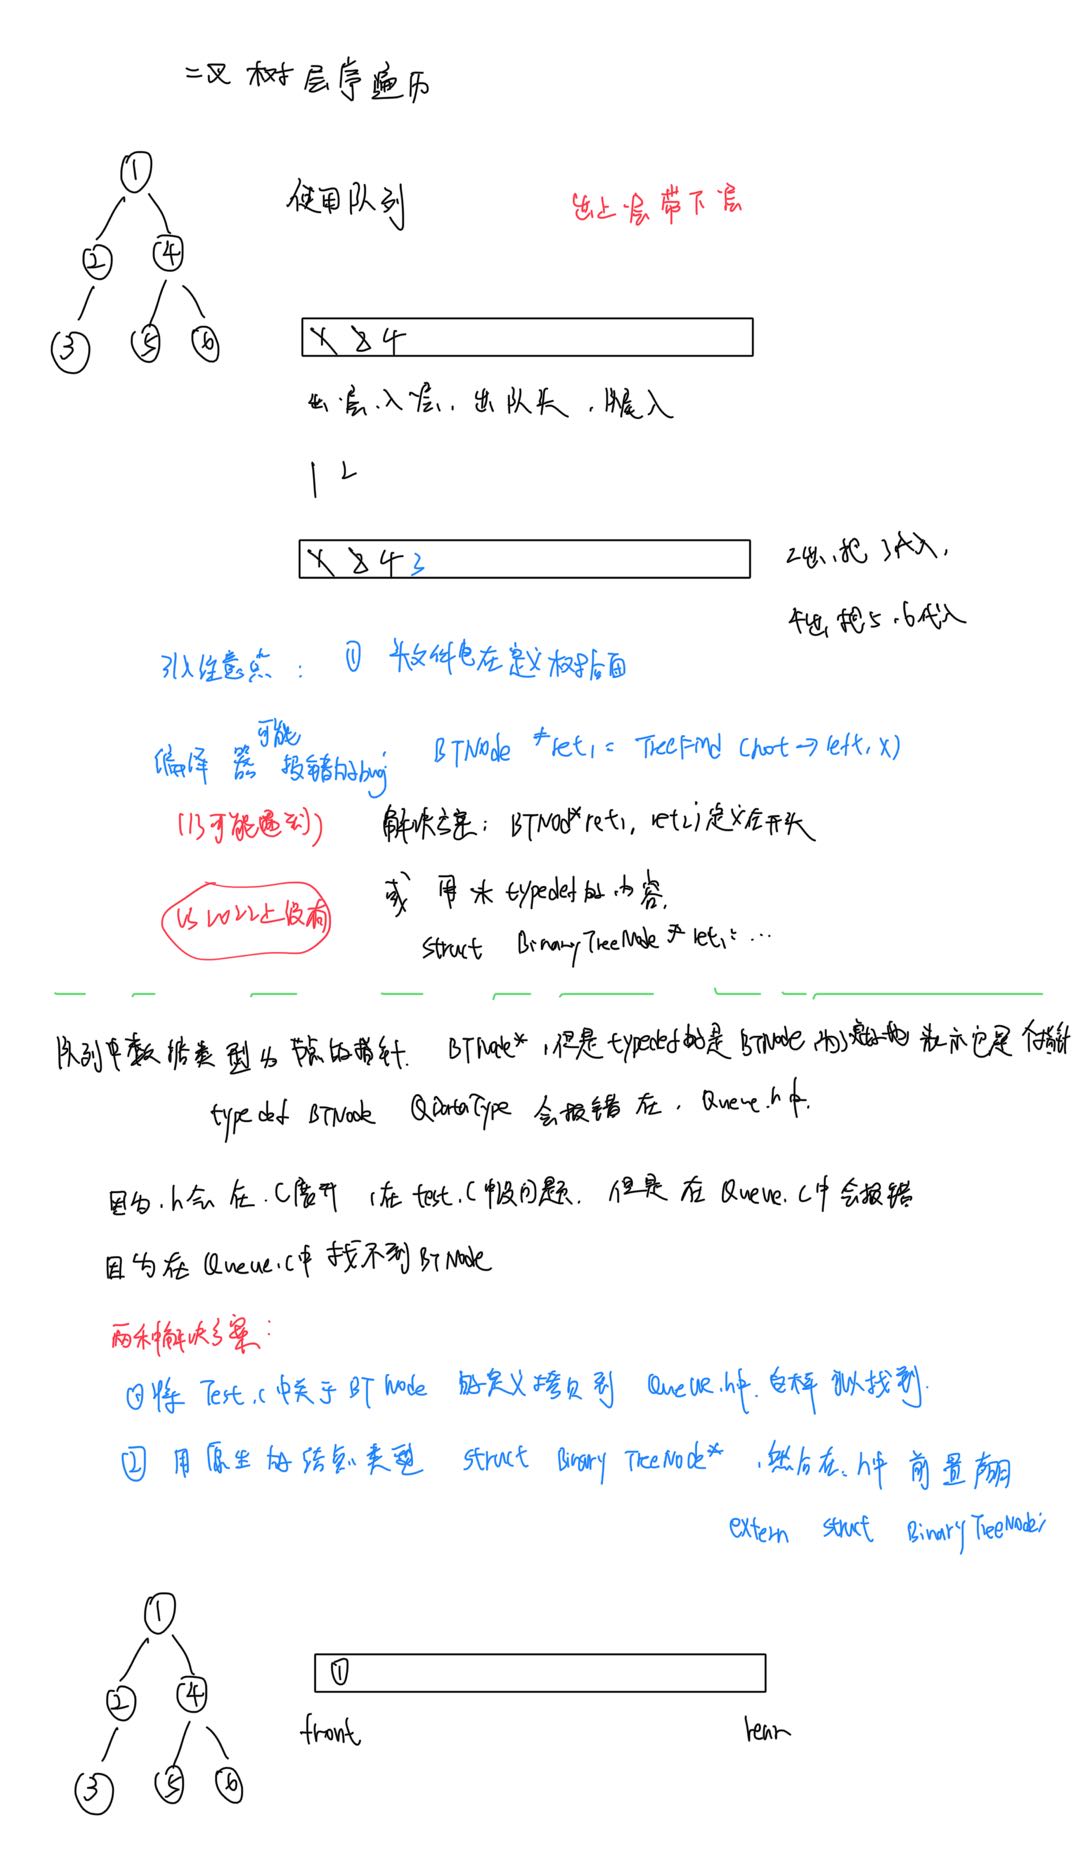 二叉树层序遍历
1
使用队列
出上一层带下一层
2 4
3 5 6
1 2 4
出一层,入一层,出队头,队尾入
1 2
1 2 4 3
2出,把3代入,
4出,把5,6代入
引入注意点: ① 头文件包在定义树后面
编译器可能报错的bug BTNode *ret1 = TreeFind (root->left, x)
(OJ可能遇到) 解决方案: BTNode*ret1, ret2;定义在开头
VS2022上没有 或用未typedef的内容,
struct BinaryTreeNode *ret1= ...
队列中数据类型为节点的指针. BTNode* ,但是typedef的是BTNode 表示它是个指针
typedef BTNode QDataType 会报错在. Queue.h中.
因为.h会在.C展开,在test.C中没问题. 但是在Queue.C中会报错
因为在Queue.C中找不到BTNode
两种解决方案:
①将Test.C中关于BTNode的定义拷贝到Queue.h中.这样可以找到.
② 用原生的结点类型 struct BinaryTreeNode* ,然后在.h中前置声明
extern struct BinaryTreeNode;
1
2 4
3 5 6
①
front rear